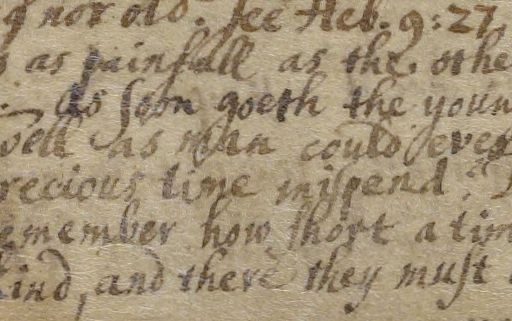 g nor old. see Heb. 9:27
s as painfull as the othe
. As soon goeth the youn
well as man could ever
recious time mispend.
emember how short a tim
kind, and there they must